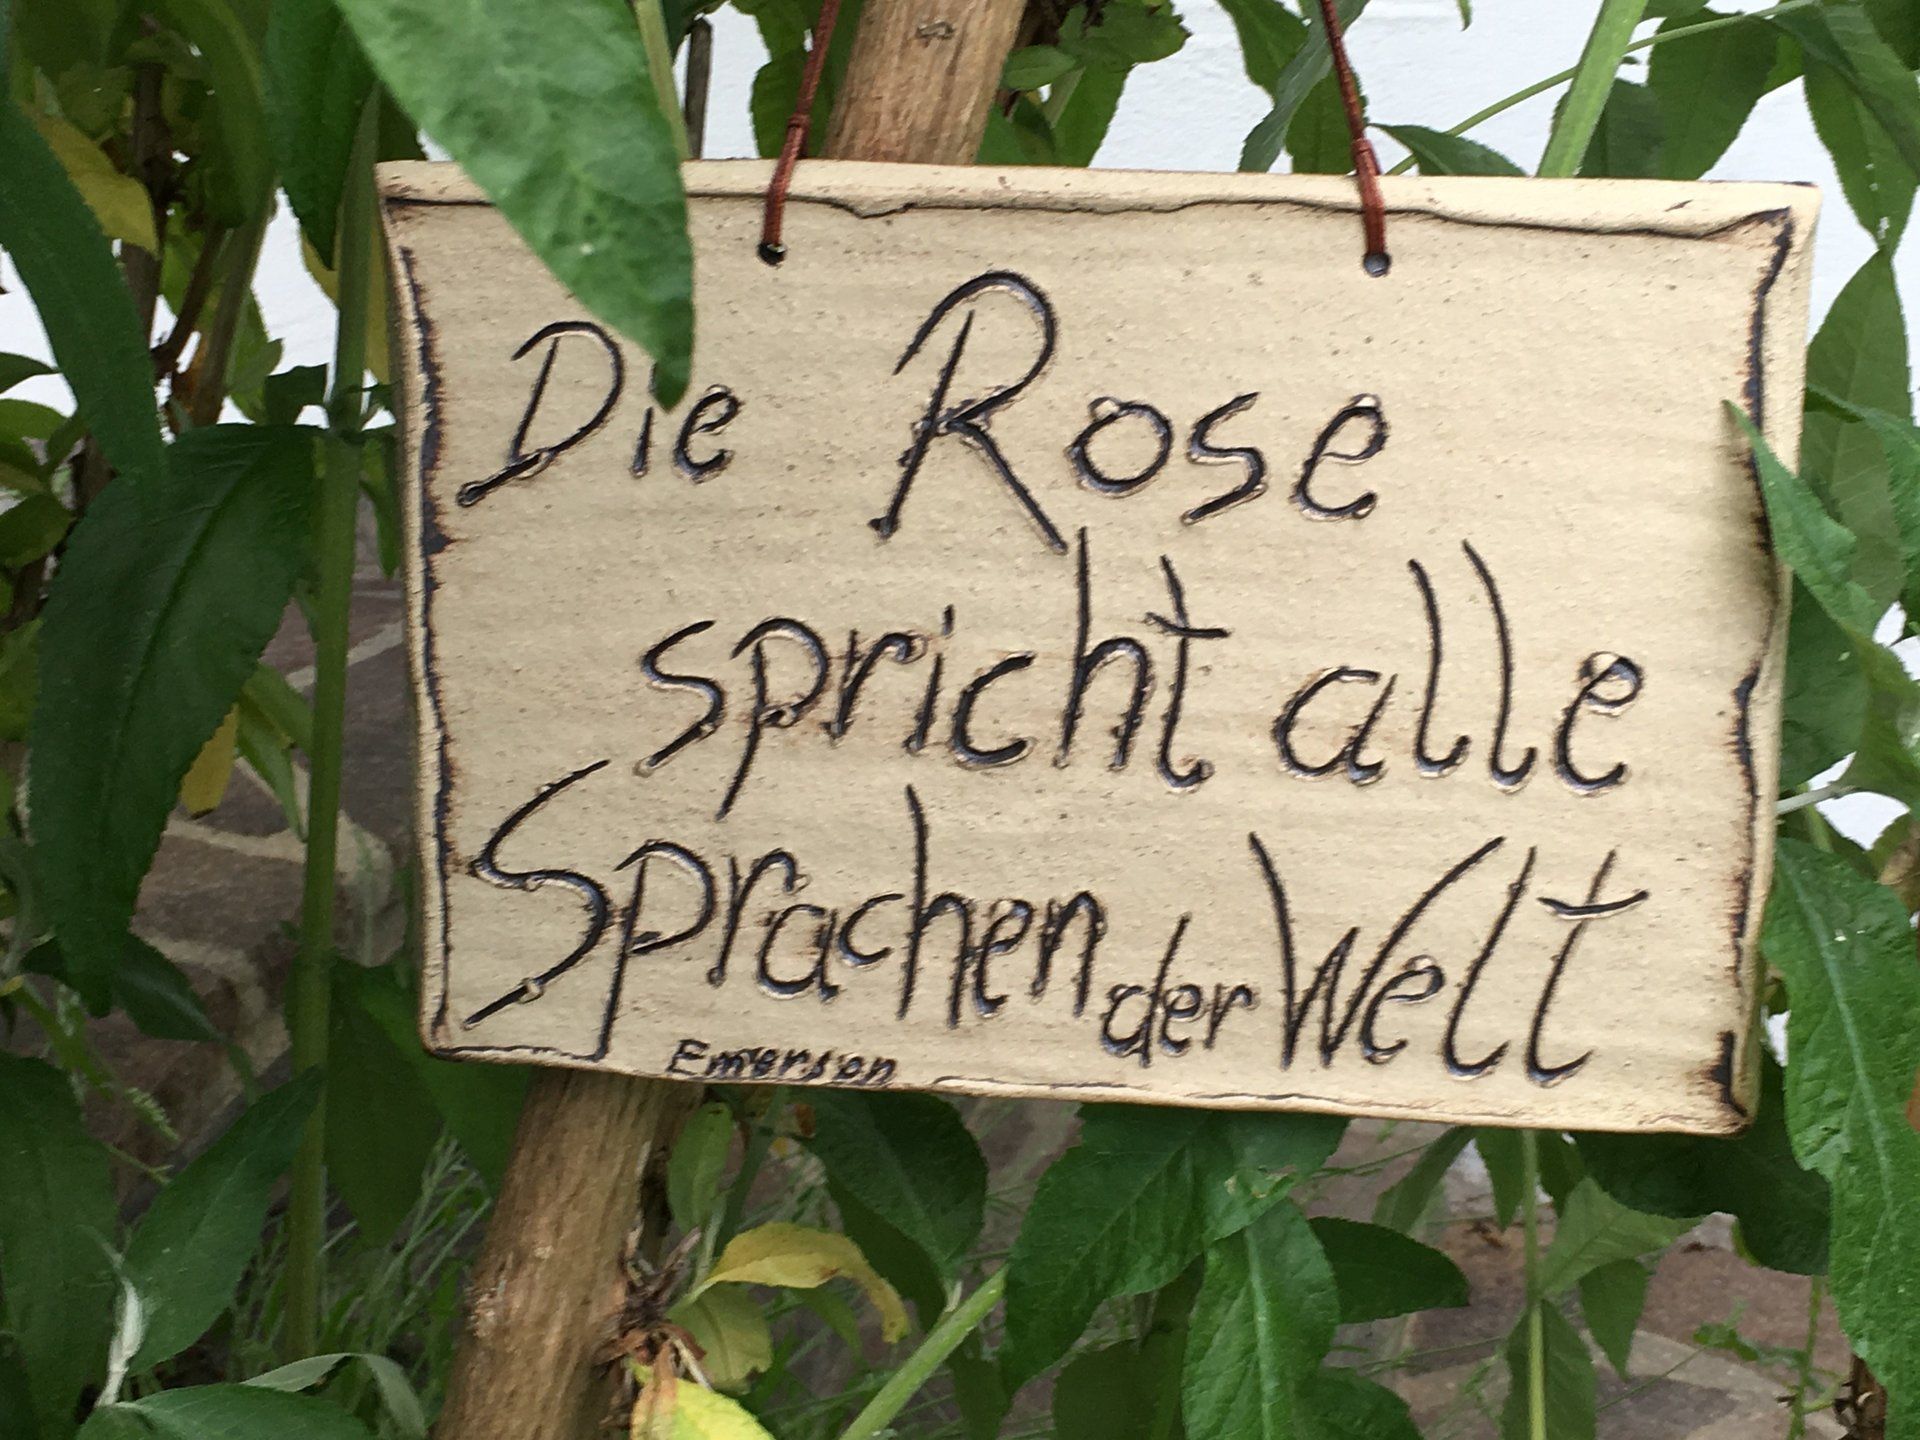 Die Rose
spricht alle
Sprachen der Welt
Emerson